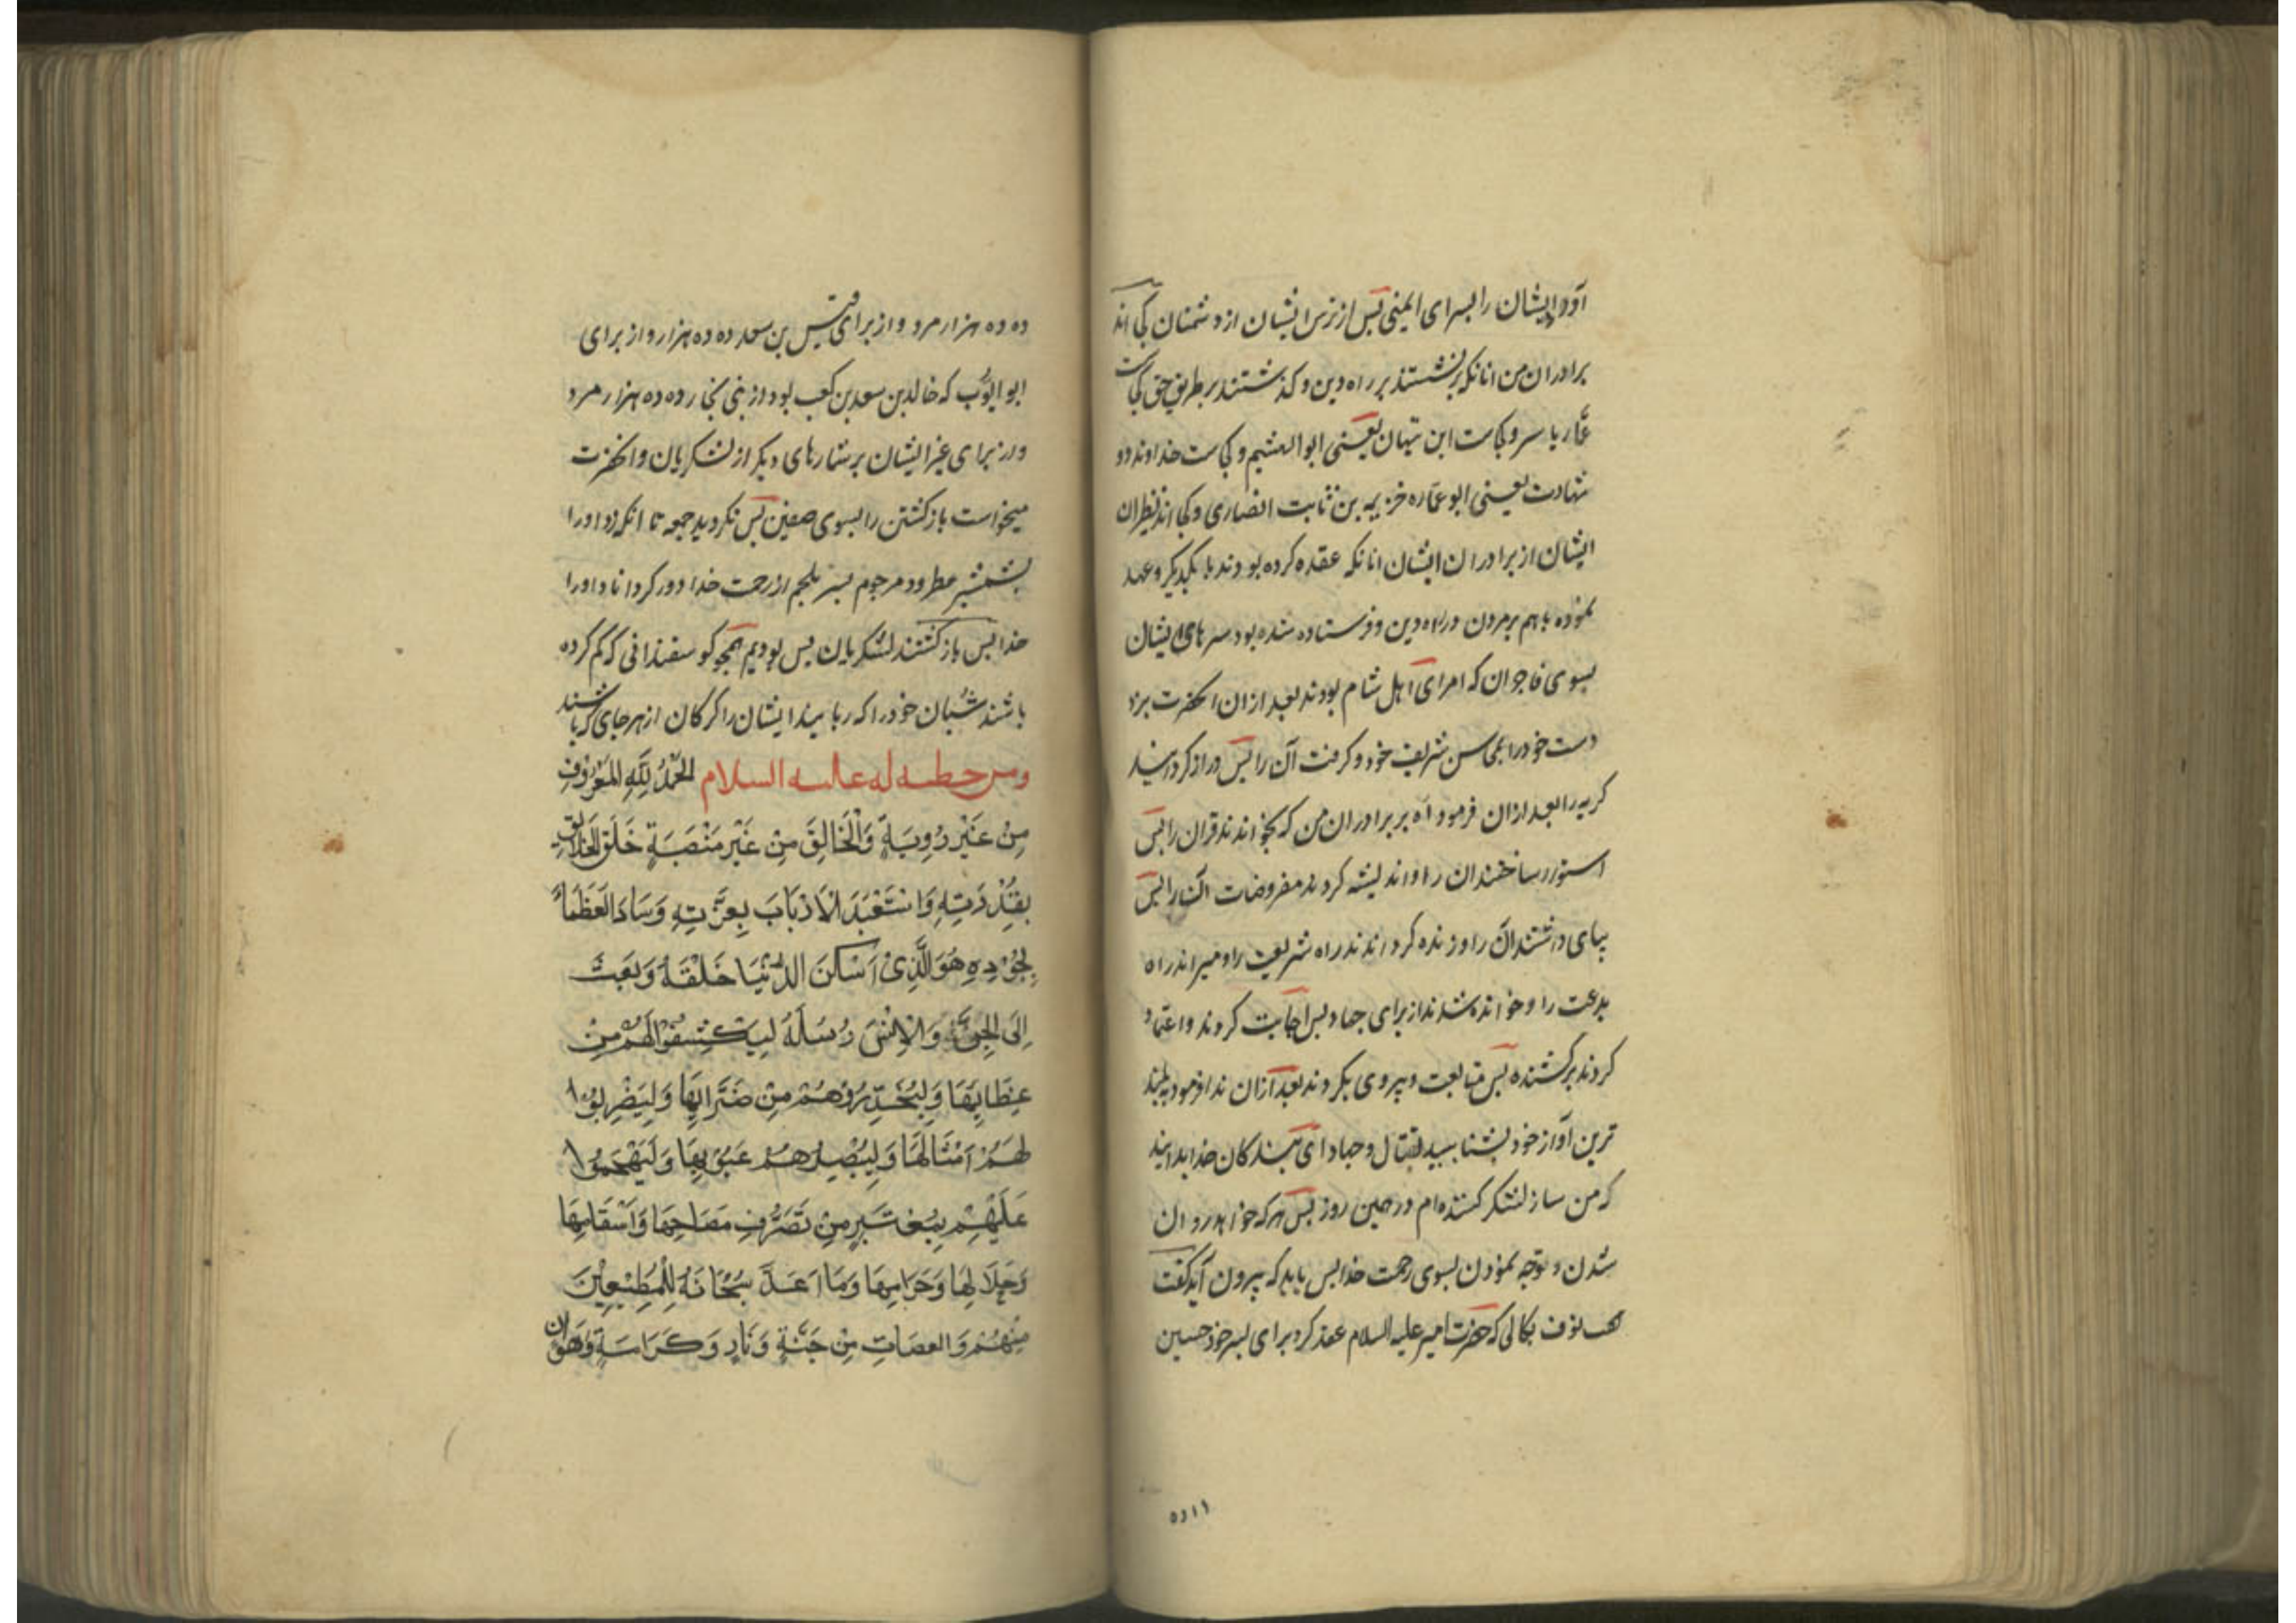 آورد ایشان را بسرای ایمنی پس از ترس ایشان از دشمنان کجا اند
برادران من انانکه برنشستند بر راه دین و کذشتند بر طریق حق کجاست
عمّار یاسر و کجاست ابن تیهان یعنی ابو الهشیم و کجاست خداوند دو
شهادت یعنی ابو عمّاره خزیمه بن ثابت انصاری و کجا اند نظیران
ایشان از برادران ایشان انانکه عقده کرده بودند با یکدیکر و عهد
نموده باهم بر مردن در راه دین و فرستاده شده بود سرهای ایشان
بسوی فاجران که امرای اهل شام بودند بعد ازان انحضرت بزد
دست خود را بمحاسن شریف خود و کرفت آن را پس دراز کردانید
کریه را بعد ازان فرمود آه بر برادران من که بخواندند قران را پس
استوار ساختند ان را و اندیشه کردند مفروضات آن را پس
بپای داشتند آن را و زنده کردانندند راه شریعت را و میراندند راه
بدعت را و خوانده شدند از برای جهاد پس اجابت کردند و اعتماد
کردند بر کشنده پس متابعت و پیروی بکردند بعد ازان ندا فرمود به بلند
ترین آواز خود بشتابید بقتال و جهاد ای بندکان خدا بدانید
که من ساز لشکر کننده ام در همین روز پس هر که خواهد روان
شدن و توجه نمودن بسوی رحمت خدا پس باید که بیرون آید کفت
نوف بکالی که حضرت امیر علیه السلام عقد کرد برای پسر خود حسین
ده ده هزار مرد و از برای قیس بن سعد ده ده هزار و از برای
ابو ایوّب که خالد بن سعد بن کعب بود از بنی نجار ده ده هزار مرد
و از برای غیر ایشان بر شمارهای دیکر از لشکریان و انحضرت
میخواست بازکشتن را بسوی صفین پس نکردید جمعه تا انکه زد او را
بشمشیر مطرود مرجوم پسر ملجم از رحمت خدا دور کرداناد او را
خدا پس باز کشتند لشکریان پس بودیم همچو کوسفندانی که کم کرده
باشند شبان خود را که ربایند ایشان را کرکان از هر جای که باشند
ومن خطبه له علیه السلام الحَمْدُ لِلَّهِ المَعْرُوفِ
مِنْ غَیْرِ رُویَةٍ وَالْخَالِقِ مِنْ غَیْرِ مَنْصَبَةٍ خَلَقَ الخَلَائِقَ
بِقُدْرَتِهِ وَاسْتَعْبَدَ الْاَرْبَابَ بِعِزَّتِهِ وَسَادَ الْعُظَمَاءَ
بِجُوْدِهِ هُوَ الَّذِیْ اَسْکَنَ الدُّنْیَا خَلْقَهُ وَبَعَثَ
اِلَی الْجِنِّ وَالْاِنْسِ رُسُلَهُ لِیَکْشِفُوْا لَهُمْ مِنْ
غِطَائِهَا وَلِیُحَذِّرُوْهُمْ مِنْ ضَرَّائِهَا وَلِیَضْرِبُوْا
لَهُمْ اَمْثَالَهَا وَلِیُبْصِرُهُمْ عُیُوْبَهَا وَلِیَهْجِمُوْا
عَلَیْهِمْ بِمُعْتَبَرٍ مِنْ تَصَرُّفِ مَصَاحِّهَا وَاَسْقَامِهَا
وَحَلَالِهَا وَحَرَامِهَا وَمَا اَعَدَّ سُبْحَانَهُ لِلْمُطِیْعِیْنَ
مِنْهُمْ وَالعصَاتِ مِنْ جَنَّةٍ وَنَارٍ وَکَرَامَةٍ وَهَوَانٍ